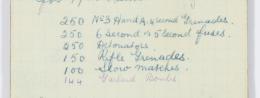 250 No 3 Hand A. 4 second Grenades.
250 6 second & 5 second fuses.
250 Detonators
150 Rifle Grenades.
100 Slow matches.
144 Garland Bombs